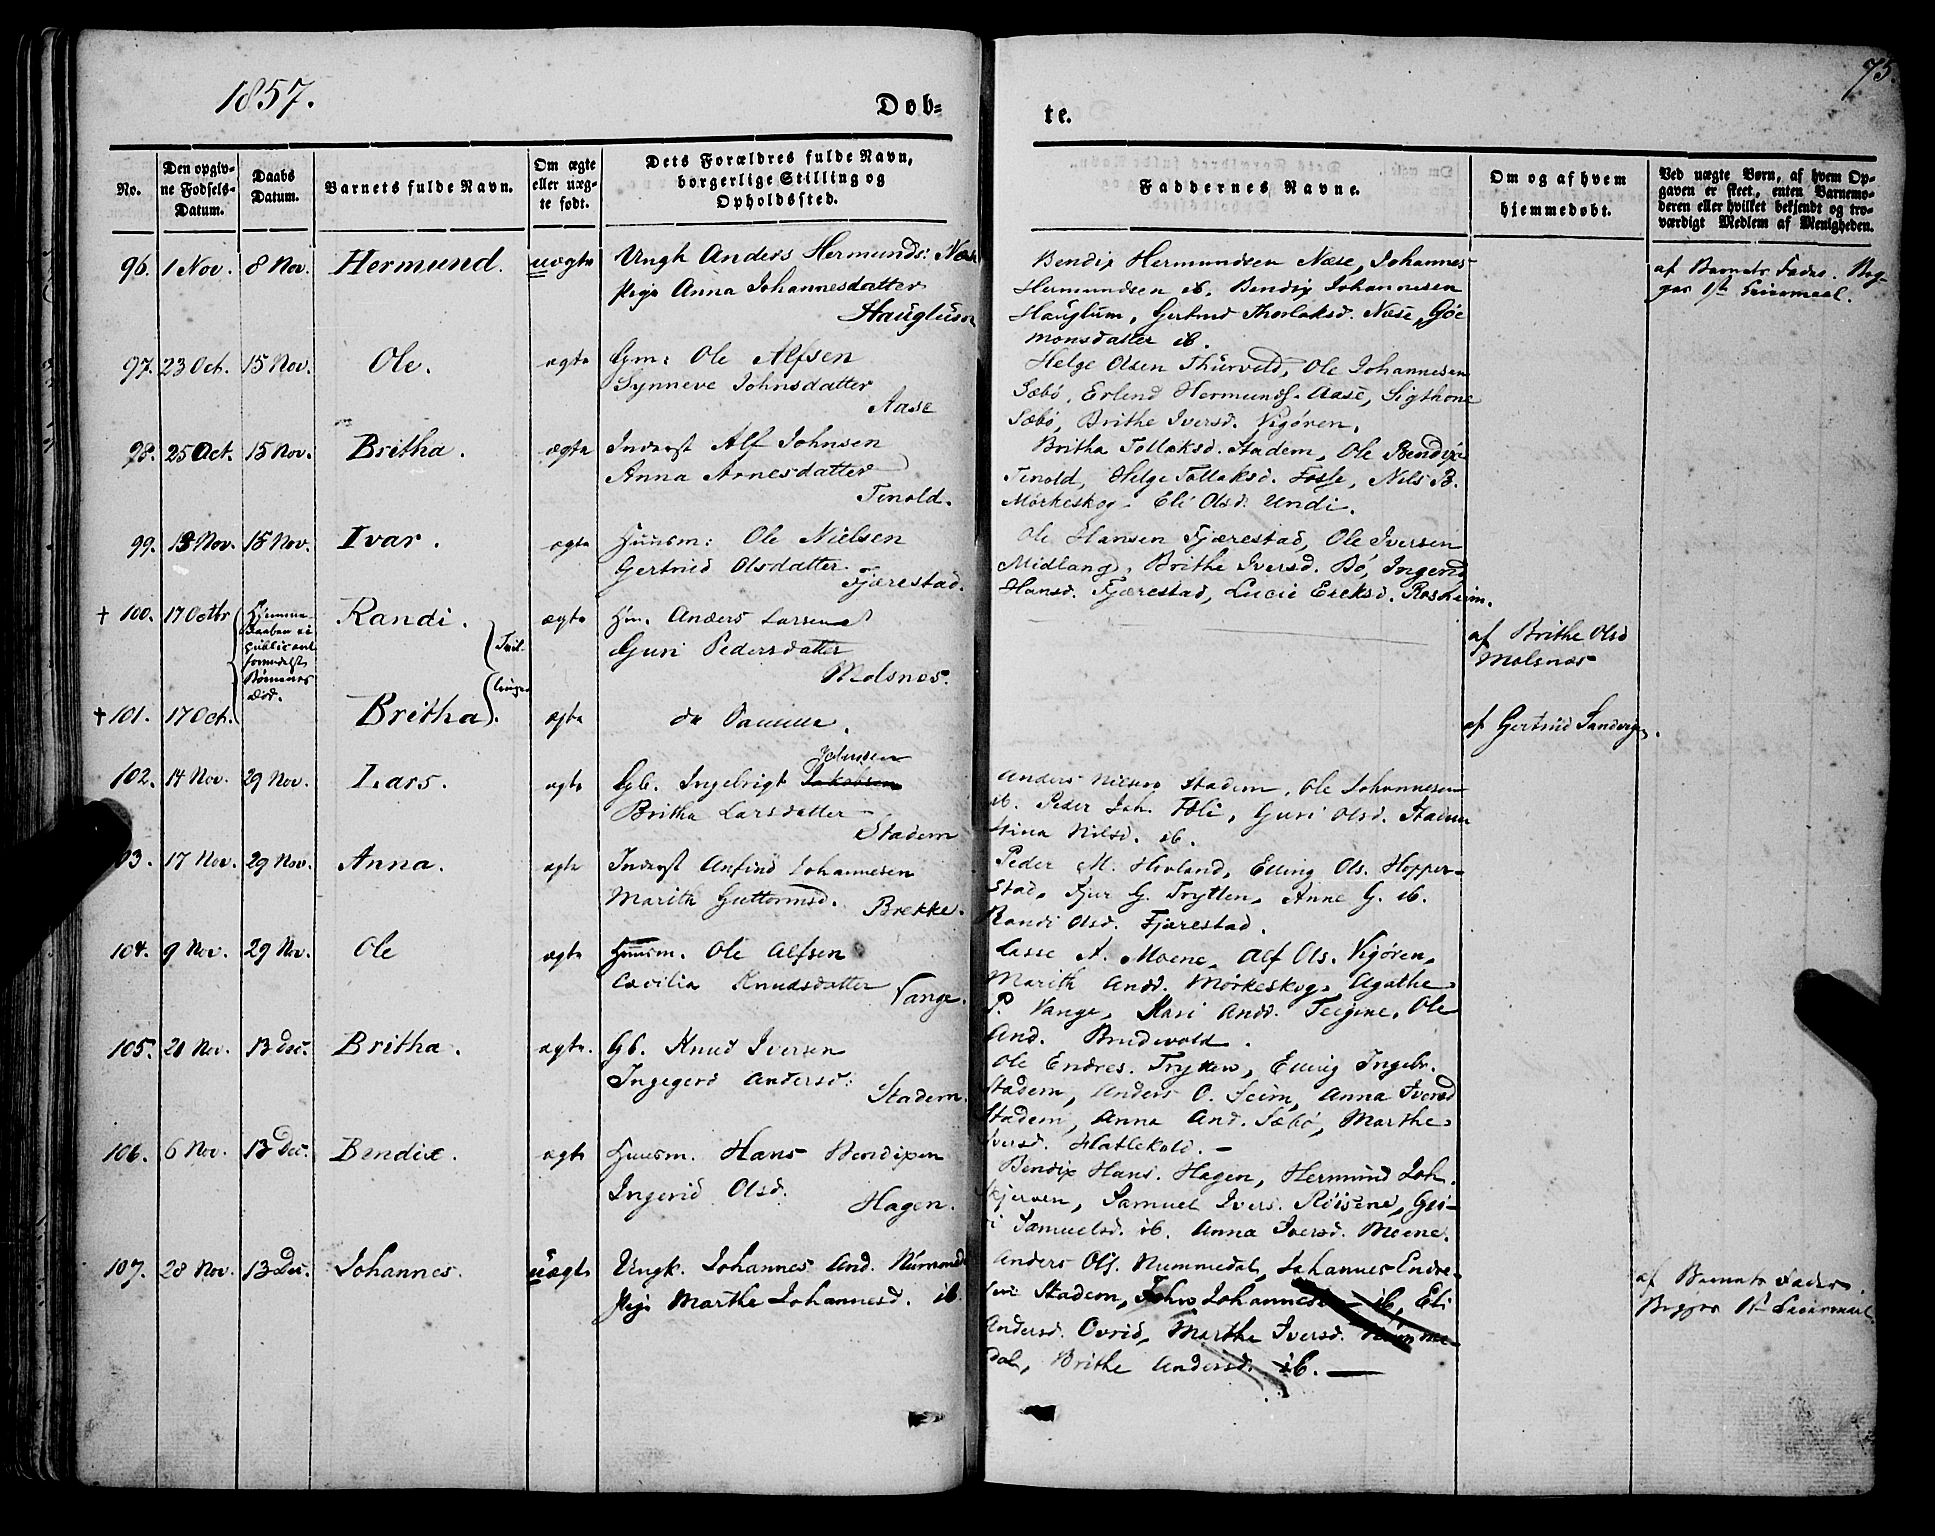 1857.
Døb=
te.
75.
No.
Den opgiv=
ne Fødsels=
Datum.
Daabs
Datum.
Barnets fulde Navn.
Om ægte
eller uæg=
te født.
Dets Forældres fulde Navn,
borgerlige Stilling og
Opholdssted.
Faddernes Navne.
Om og af hvem
hjemmedøbt.
Ved uægte Børn, af hvem Op=
gaven er skeet, enten Barnemo=
deren eller hvilket bekjendt og tro=
værdigt Medlem af Menigheden.
96. 1 Nov. 8 Nov. Hermund. uægte
Ungk Anders Hermunds: Næse
Pige Anna Johannesdatter
Hauglum
Bendix Hermundsen Næse, Johannes
Hermundsen ib. Bendix Johannesen
Hauglum, Gertrud Thorlaksd. Næse,
monsdatter ib.
af Barnets Fader. Beg-
ges 1ste Leiermaal.
97. 23 Oct. 15 Nov. Ole. ægte
Gm: Ole Alfsen
Synneve Johnsdatter
Aase
Helge Olsen Thurvold, Ole Johannesen
Sæbø, Erlend Hermunds. Aase, Sigthone
Sæbø, Brithe Iversd. Vigøren.
98. 25 Oct. 15 Nov. Britha. ægte
Inderst Alf Johnsen
Anna Arnesdatter
Tenold.
Britha Tollaksd. Stadem, Ole Bendix
Tenold, Helge Tollaksd. Fosse, Nils B.
Mørkeskog. Eli Olsd. Undi.
99. 13 Nov. 15 Nov. Ivar. ægte
Huusm: Ole Nielsen
Gertrud Olsdatter
Fjærestad.
Ole Hansen Fjærestad, Ole Iversen
Midlang, Brithe Iversd. Bø, Ingerid
Hansd. Fjærestad, Lucie Ericksd. Rosheim.
+ 100. 17 Octbr Hjemme-
daaben ei
publiceret
formedelst
Børnenes
Død.
Randi. Tvil-
linger
ægte
Hm. Anders Larsen
Guri Pedersdatter
Molsnes.
af Brithe Olsd
Molsnæs
+ 101. 17 Oct. Britha. ægte
de Samme.
af Gertrud Sandvig.
102. 14 Nov. 29 Nov. Lars. ægte
Johnsen
Gb. Ingebrigt Jakobsen
Britha Larsdatter
Stadem
Anders Nielsen Stadem, Ole Johannesen
ib. Peder Joh. Fæli, Guri Olsd. Stadem
Stina Nilsd. ib.
103. 17 Nov. 29 Nov. Anna. ægte
Inderst Anfind Johannesen
Marith Guttormsd.
Brekke.
Peder M. Hovland, Elling Ols. Hopper-
stad, Sjur G. Trytten, Anne G. ib.
Randi Olsd. Fjærestad.
104. 9 Nov. 29 Nov. Ole ægte
Huusm. Ole Alfsen
Cæcilia Knudsdatter
Vange.
Lasse A. Moene, Alf Ols. Vigøren,
Marith Andd. Mørkeskog, Agathe
P. Vange, Kari Andd. Teigene, Ole
And. Brudevold.
105. 21 Nov. 13 Dec. Britha. ægte.
Gb. Knud Iversen
Ingegerd Andersd:
Stadem.
Ole Endres. Trytten, Elling Ingebr.
Stadem, Anders O. Seim, Anna Iversd
Stadem, Anna And. Sæbø, Marthe
Iversd. Hatlekold. -
106. 6 Nov. 13 Dec. Bendix. ægte
Huusm. Hans Bendixen
Ingerid Olsd.
Hagen.
Bendix Hans. Hagen, Hermund Joh.
Skjerven, Samuel Ivers. Røisene, Gu-
ri Samuelsd. ib. Anna Iversd. Moene.
107. 28 Nov. 13 Dec. Johannes. uægte
Ungk. Johannes And. Nummedal
Pige Marthe Johannesd. ib.
Anders Ols. Nummedal, Johannes Endre-
sen Stadem, John Johannesen ib, Eli
Andersd. Ovrid, Marthe Iversd. Numme-
dal, Brithe Andersd. ib.
af Barnets Fader.
Begges 1ste Leiermaal.